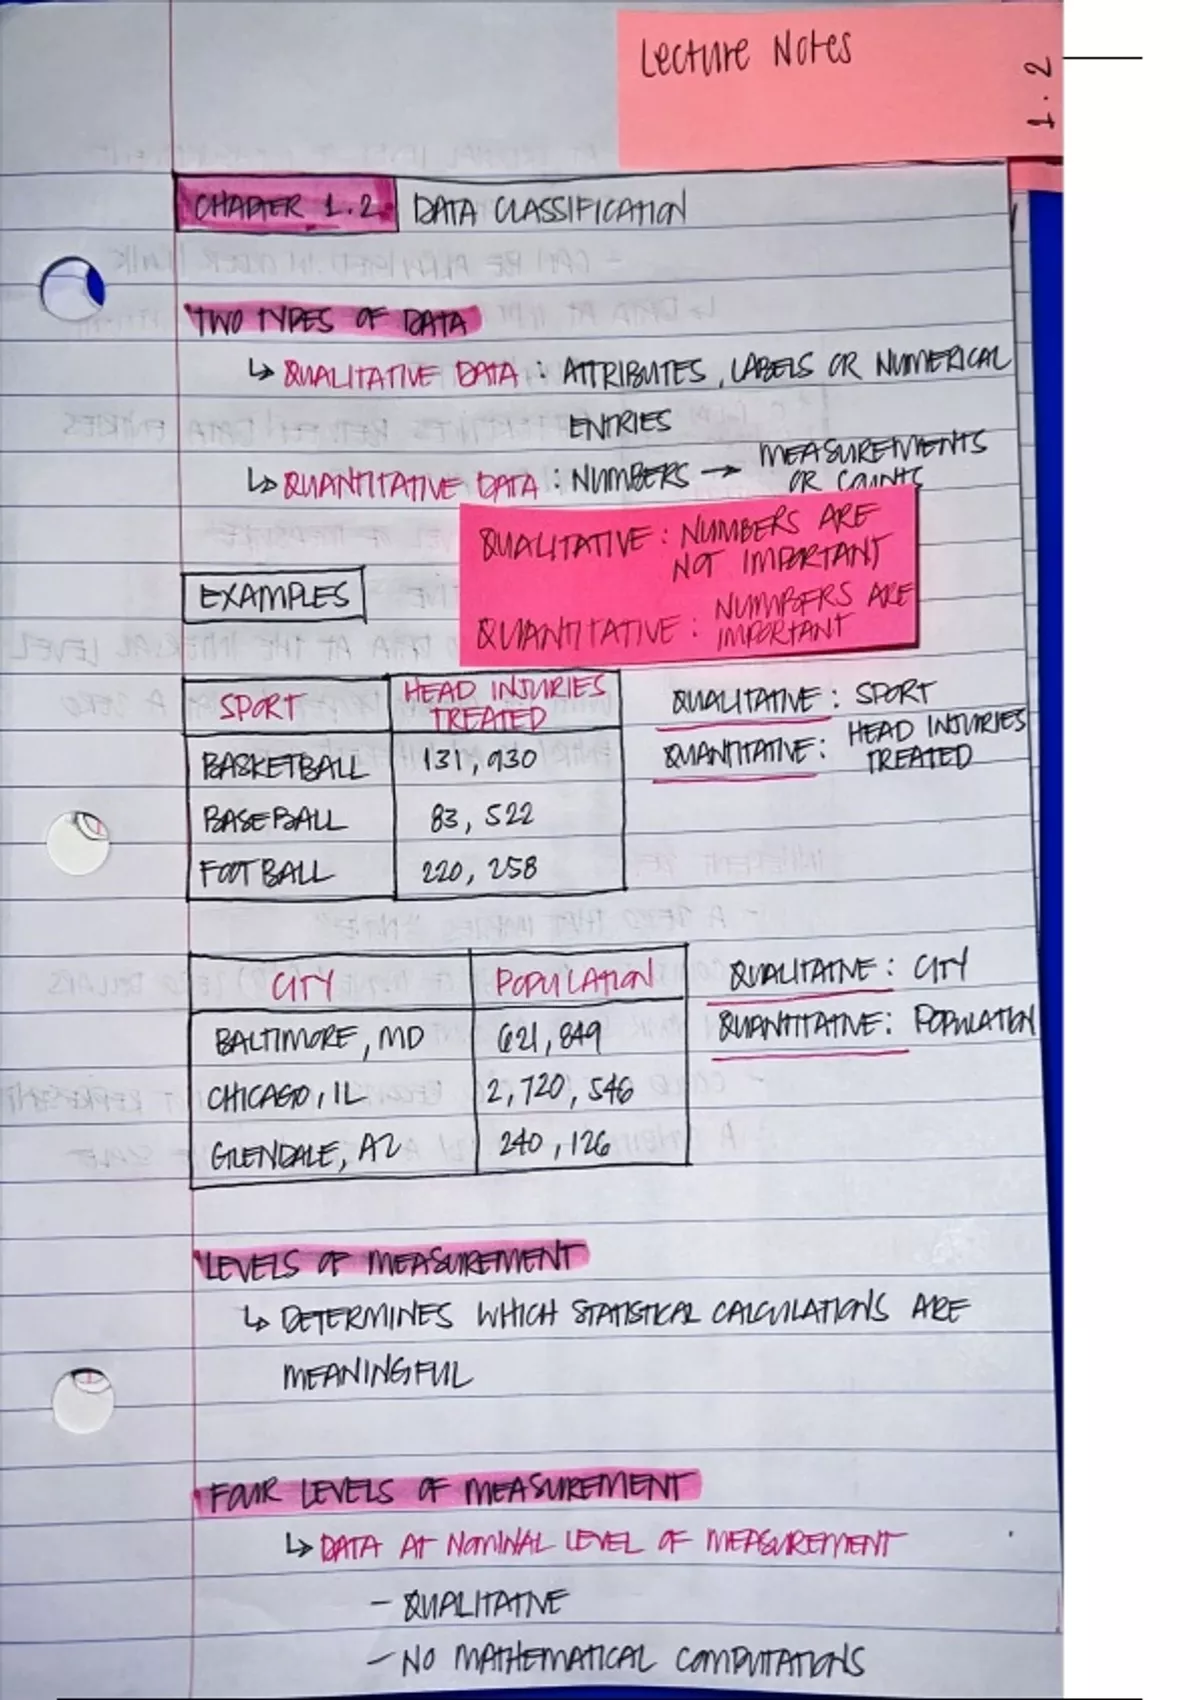 Lecture Notes
1.2
CHAPTER 1.2 DATA CLASSIFICATION
TWO TYPES OF DATA
↳ QUALITATIVE DATA : ATTRIBUTES, LABELS OR NUMERICAL
ENTRIES
↳ QUANTITATIVE DATA : NUMBERS → MEASUREMENTS
OR COUNTS
QUALITATIVE : NUMBERS ARE
NOT IMPORTANT
QUANTITATIVE : NUMBERS ARE
IMPORTANT
EXAMPLES
SPORT HEAD INJURIES
TREATED
BASKETBALL 131,930
BASEBALL 83,522
FOOTBALL 220,258
QUALITATIVE : SPORT
QUANTITATIVE : HEAD INJURIES
TREATED
CITY POPULATION
BALTIMORE, MD 621,849
CHICAGO, IL 2,720,546
GLENDALE, AZ 240,126
QUALITATIVE : CITY
QUANTITATIVE : POPULATION
LEVELS OF MEASUREMENT
↳ DETERMINES WHICH STATISTICAL CALCULATIONS ARE
MEANINGFUL
FOUR LEVELS OF MEASUREMENT
↳ DATA AT NOMINAL LEVEL OF MEASUREMENT
- QUALITATIVE
- NO MATHEMATICAL COMPUTATIONS